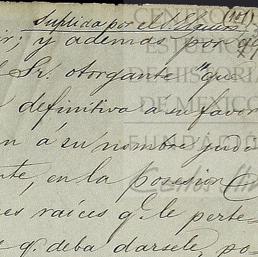 Suplida por el
ir; y ademas por q
l Sr. otorgante "que
definitiva á su favor
n á su nombre judi
nte, en la posesion
es raíces q. le perte-
q. deba darsele, po-
CENTRO DE
ESTUDIOS
DE HISTORIA
DE MEXICO
FUNDACIÓN
Carlos Slim